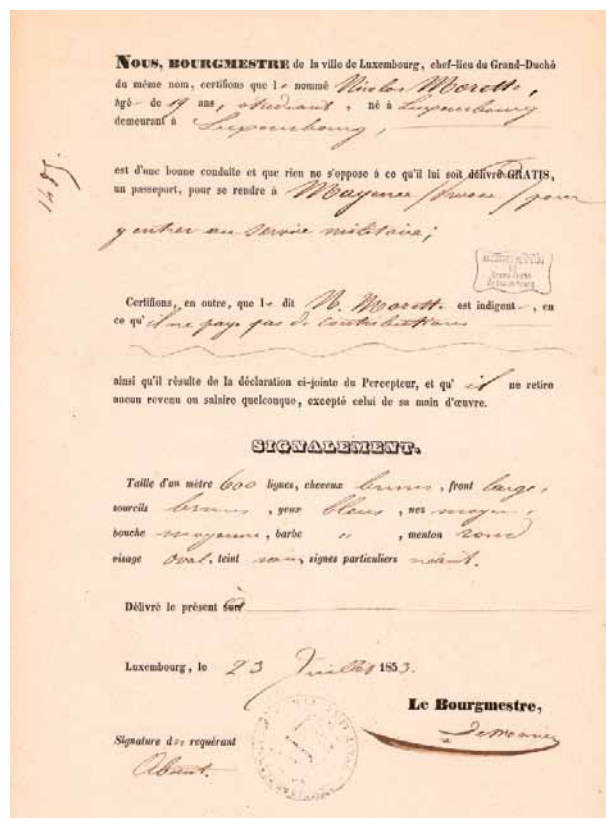 NOUS, BOURGMESTRE de la ville de Luxembourg, chef-lieu du Grand-Duché
du même nom, certifions que le nommé Nicolas Marott,
âgé de 19 ans, étudiant, né à Luxembourg
demeurant à Luxembourg,
est d'une bonne conduite et que rien ne s'oppose à ce qu'il lui soit délivré GRATIS,
un passeport, pour se rendre à Mayence (Prusse) pour
y entrer au service militaire;
Certifions, en outre, que le dit N. Marott est indigent, en
ce qu'il ne paye pas de contributions
ainsi qu'il résulte de la déclaration ci-jointe du Percepteur, et qu'il ne retire
aucun revenu ou salaire quelconque, excepté celui de sa main d'œuvre.
SIGNALEMENT.
Taille d'un mètre 600 lignes, cheveux bruns, front large,
sourcils bruns, yeux bleus, nez moyen,
bouche moyenne, barbe ", menton rond
visage oval, teint sain, signes particuliers néant.
Délivré le présent sur
Luxembourg, le 23 Juillet 1853.
Le Bourgmestre,
Signature du requérant
Absent.